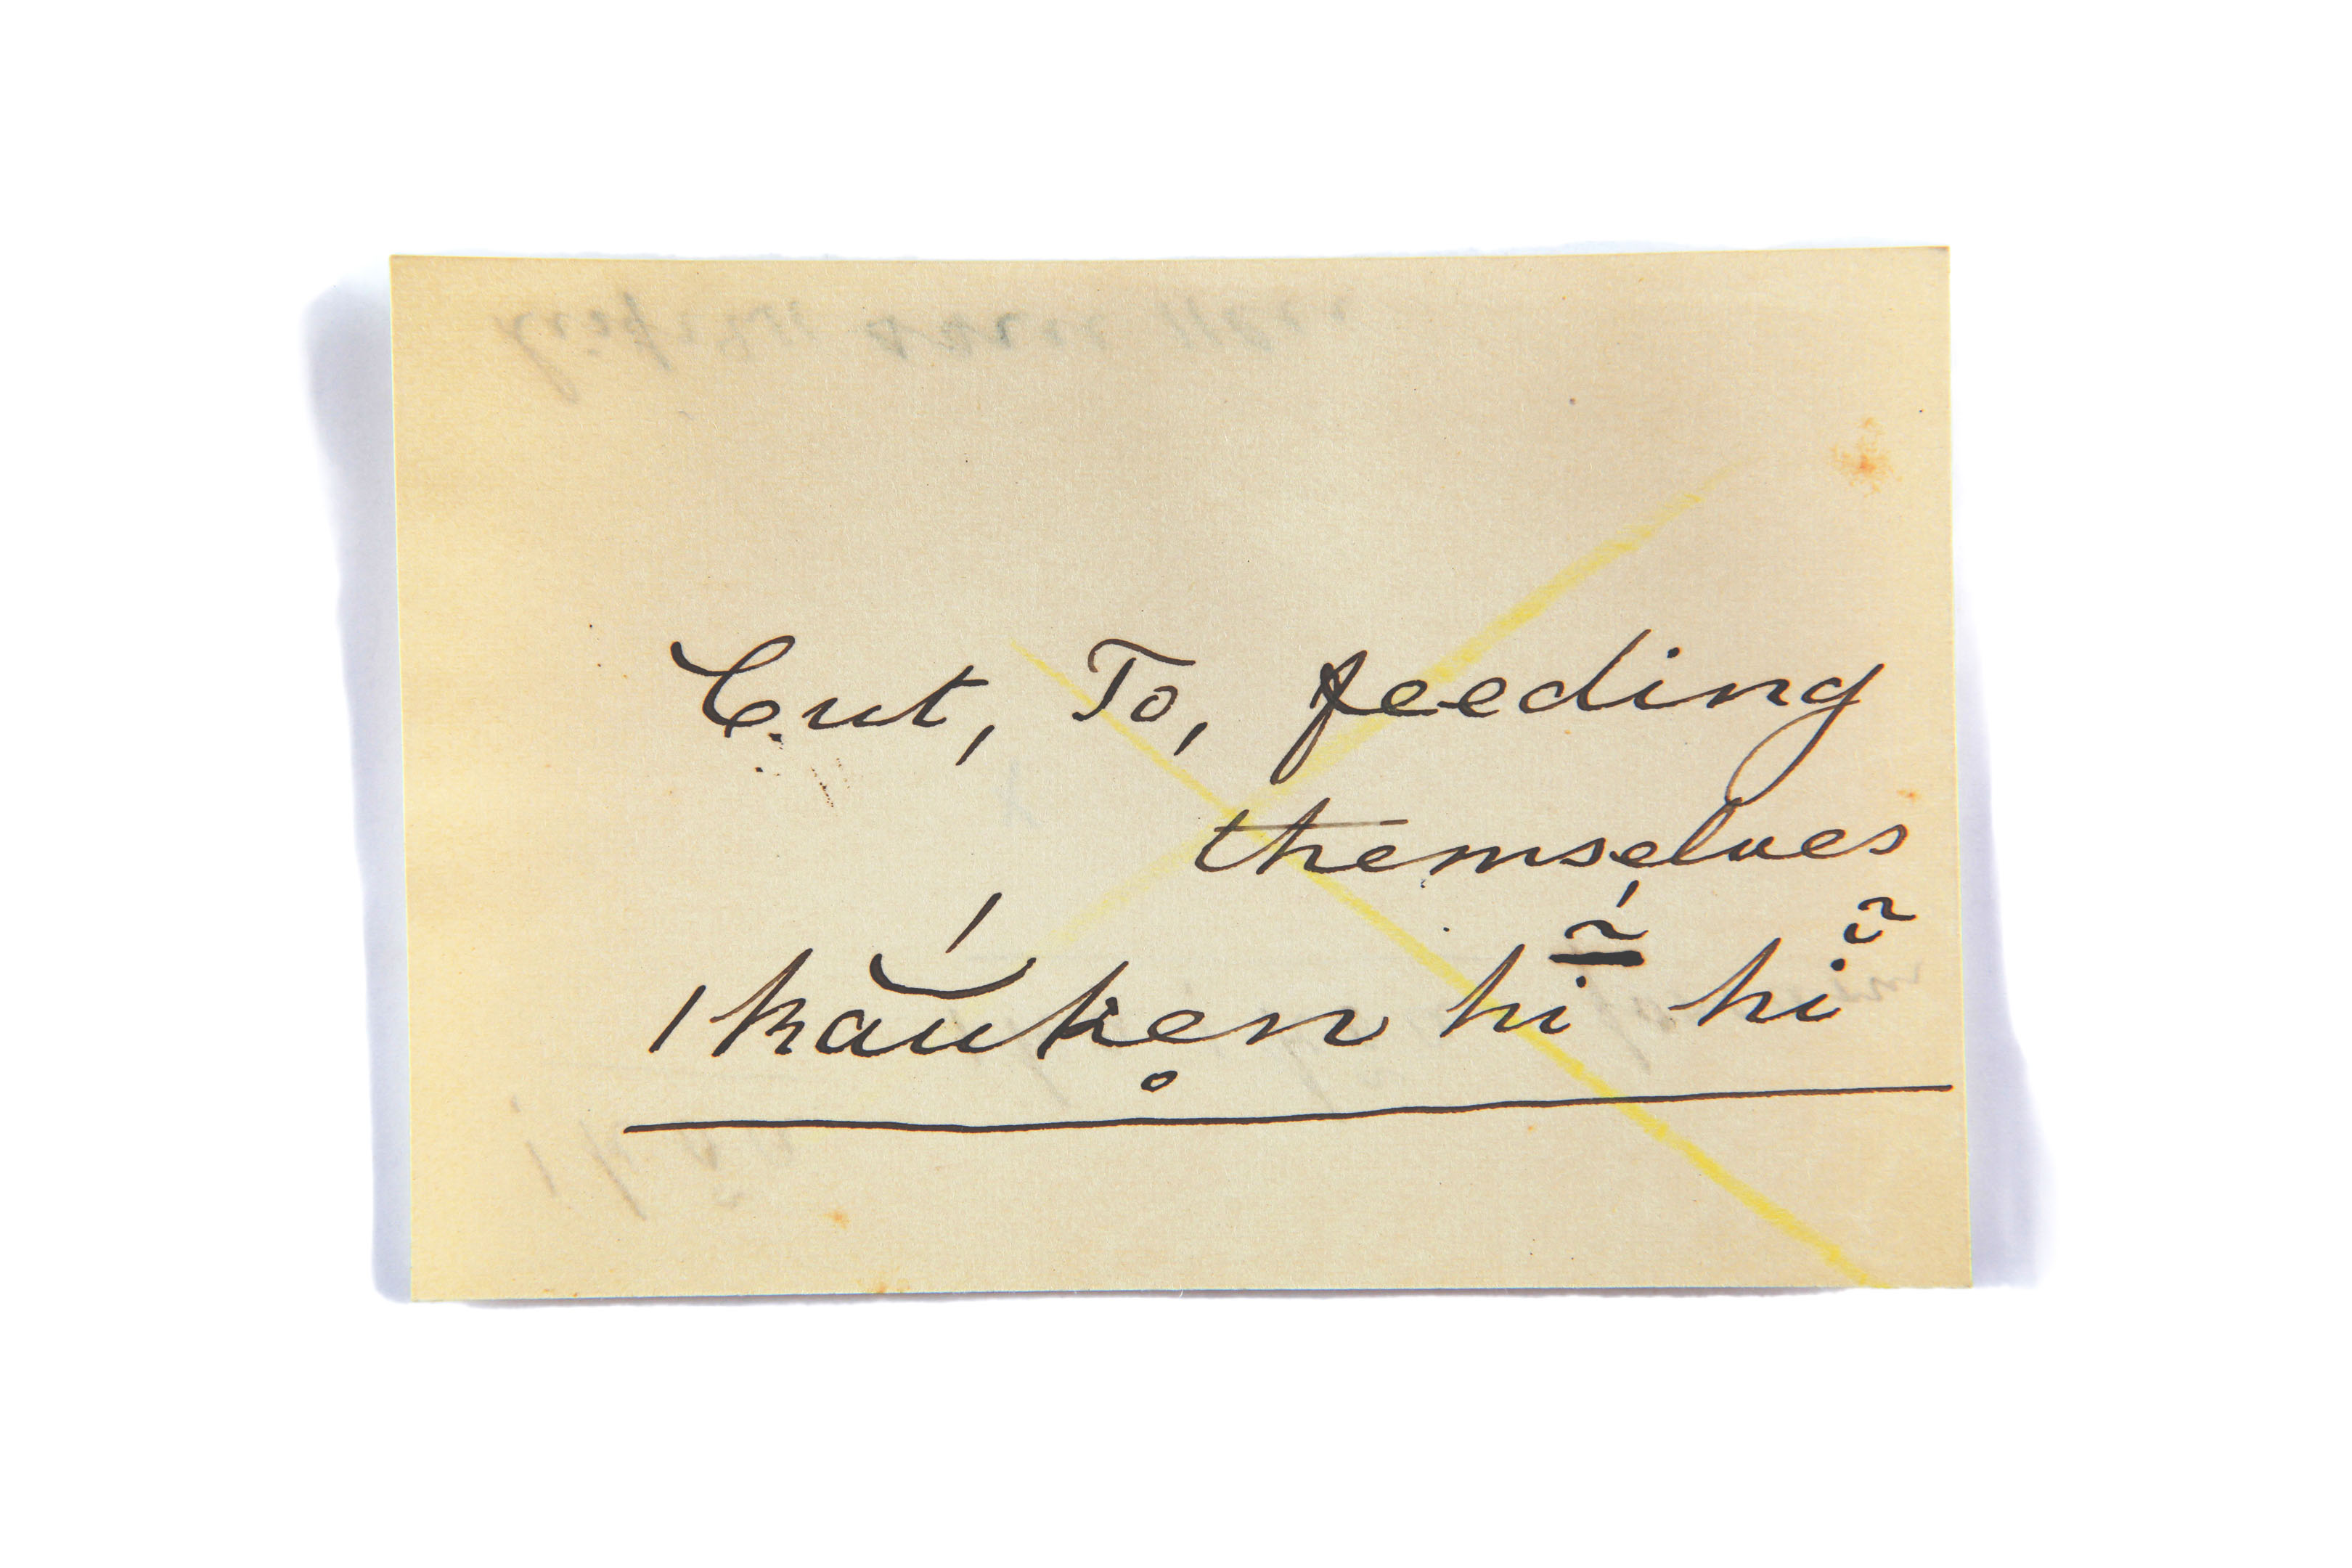 Cut, To, feeding
themselves
ıkău̇́ke̥n hī̃́ hĭ̃